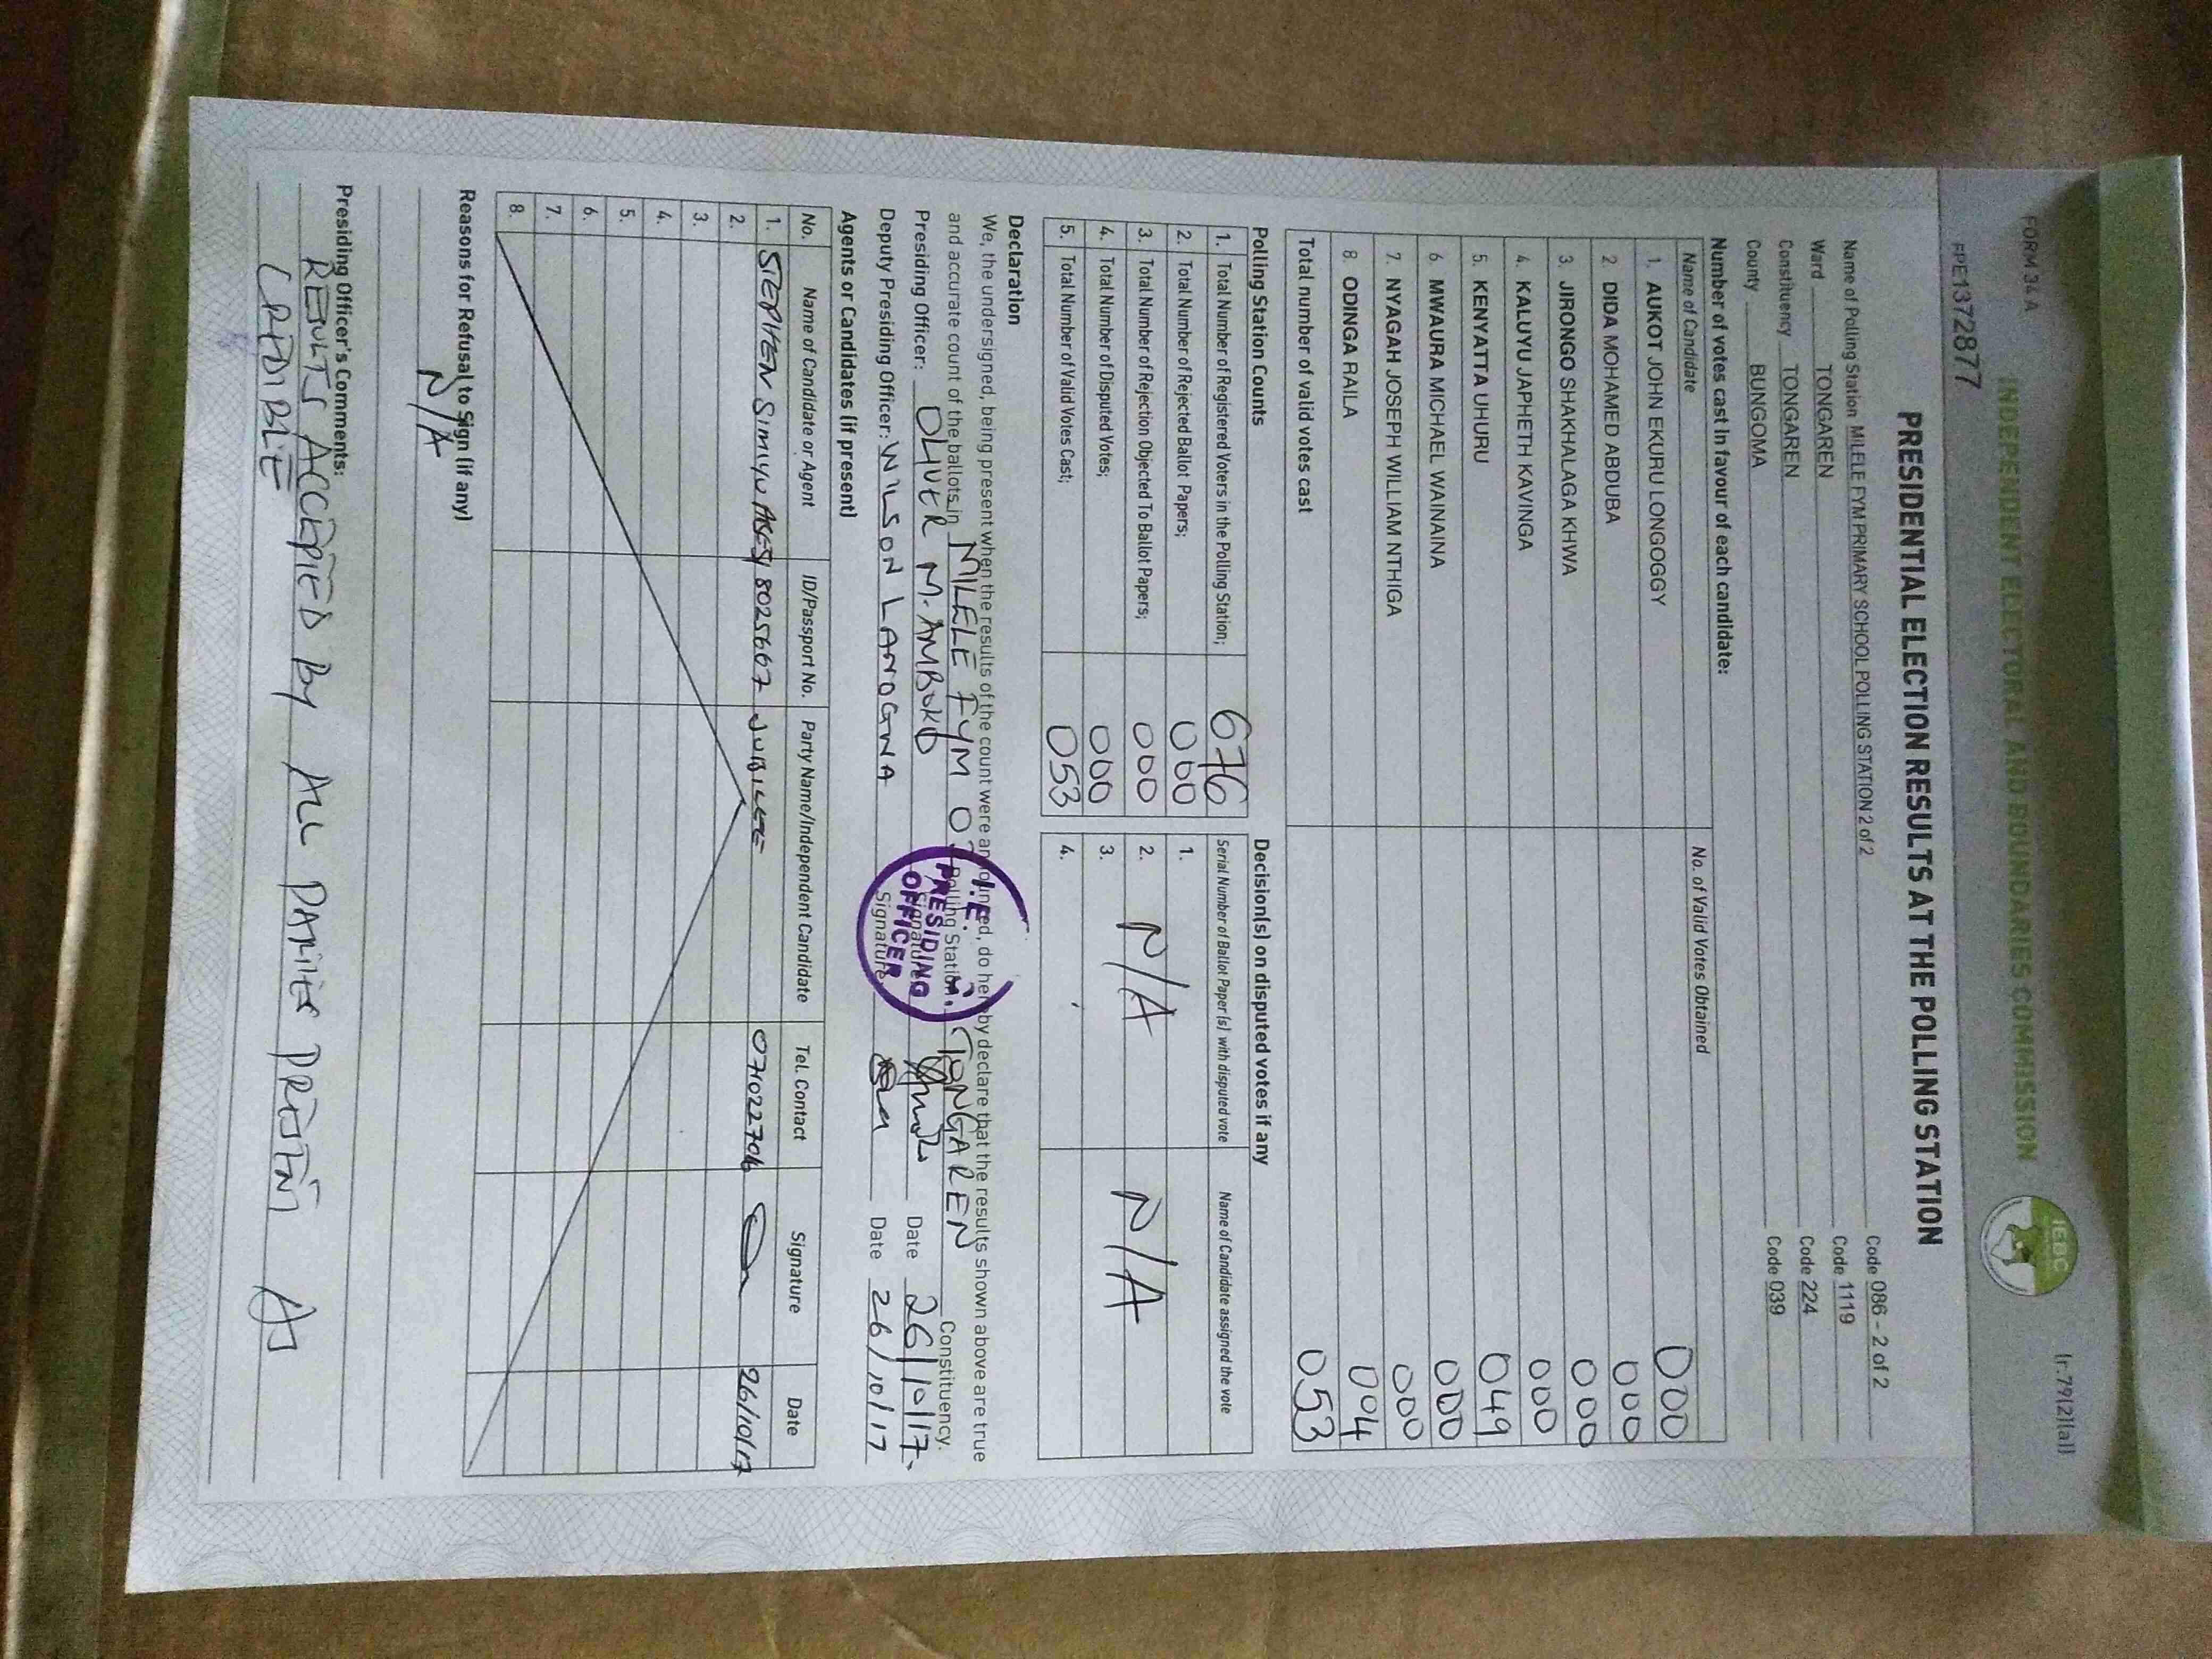 FORM 34 A
(r.79(2)(a))
INDEPENDENT ELECTORAL AND BOUNDARIES COMMISSION
IEBC
PPE1372877
PRESIDENTIAL ELECTION RESULTS AT THE POLLING STATION
Name of Polling Station MILELE FYM PRIMARY SCHOOL POLLING STATION 2 of 2 Code 086 - 2 of 2
Ward TONGAREN Code 1119
Constituency TONGAREN Code 224
County BUNGOMA Code 039
Number of votes cast in favour of each candidate:
Name of Candidate No. of Valid Votes Obtained
1. AUKOT JOHN EKURU LONGOGGY 000
2. DIDA MOHAMED ABDUBA 000
3. JIRONGO SHAKHALAGA KHWA 000
4. KALUYU JAPHETH KAVINGA 000
5. KENYATTA UHURU 049
6. MWAURA MICHAEL WAINAINA 000
7. NYAGAH JOSEPH WILLIAM NTHIGA 000
8. ODINGA RAILA 004
Total number of valid votes cast 053
Polling Station Counts
1. Total Number of Registered Voters in the Polling Station; 676
2. Total Number of Rejected Ballot Papers; 000
3. Total Number of Rejection Objected To Ballot Papers; 000
4. Total Number of Disputed Votes; 000
5. Total Number of Valid Votes Cast; 053
Decision(s) on disputed votes if any
Serial Number of Ballot Paper(s) with disputed vote Name of Candidate assigned the vote
1.
2. N/A N/A
3.
4.
Declaration
We, the undersigned, being present when the results of the count were announced, do hereby declare that the results shown above are true
and accurate count of the ballots in MILELE FYM Polling Station, TONGAREN Constituency.
Presiding Officer: OLIVER M. AMBOKO Signature Date 26/10/17
Deputy Presiding Officer: WILSON Signature Date 26/10/17
PRESIDING
OFFICER
Agents or Candidates (if present)
No. Name of Candidate or Agent ID/Passport No. Party Name/Independent Candidate Tel. Contact Signature Date
1. STEPHEN SIMIYU 8025667 JUBILEE 0710227706 26/10/17
2.
3.
4.
5.
6.
7.
8.
Reasons for Refusal to Sign (if any)
N/A
Presiding Officer's Comments:
RESULTS ACCEPTED BY ALL PARTIES PRESENT AS
CREDIBLE